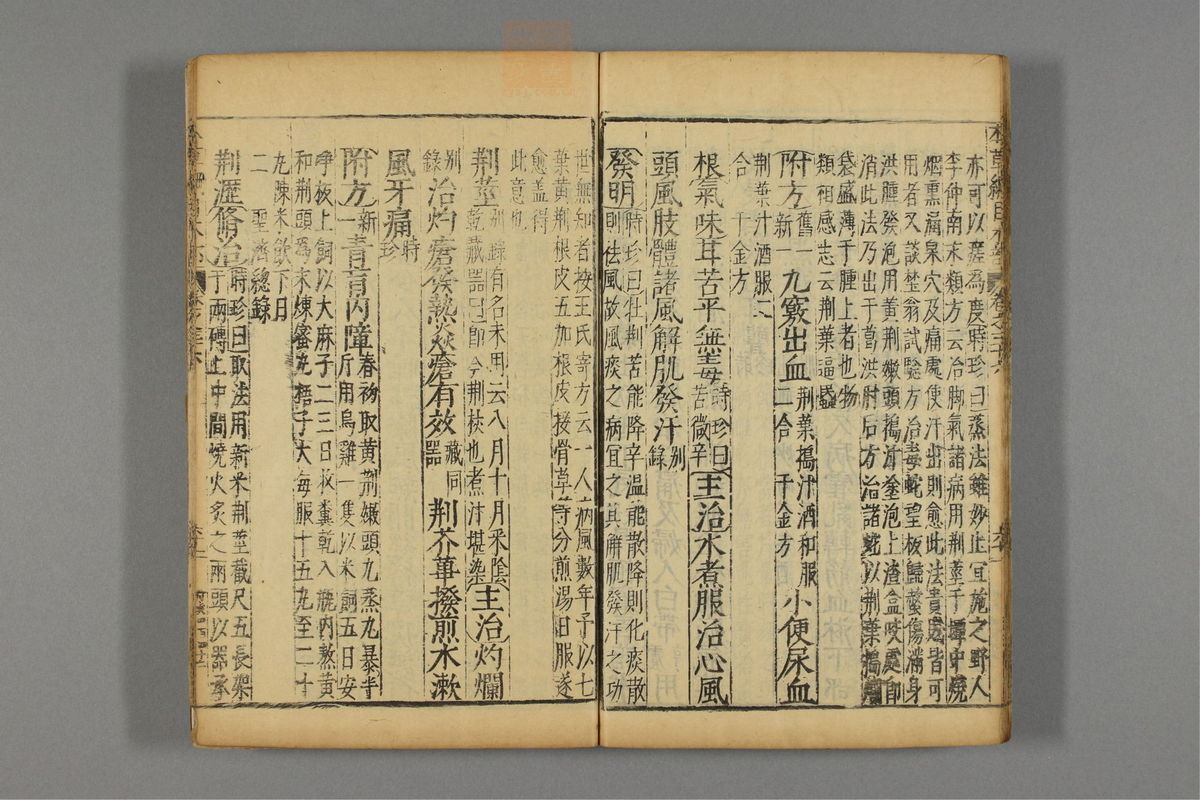 亦可以瘥為度時珍曰蒸法雖妙止宜施之野人
李仲南永類方云治脚氣諸病用荆莖于壜中燒
烟熏涌泉穴及痛處使汗出則愈此法貴賤皆可
用者又談埜翁試驗方治毒蛇望板歸螫傷滿身
洪腫發泡用黄荆嫩頭搗汁塗泡上渣盒咬處即
消此法乃出于葛洪肘后方治諸蛇以荆葉搗爛
袋盛薄于腫上者也物
類相感志云荆葉逼蟁
附方舊一新一九竅出血荆葉搗汁酒和服二合千金方小便尿血
荆葉汁酒服二
合千金方
根氣味甘苦平無毒時珍曰苦微辛主治水煮服治心風
頭風肢體諸風解肌發汗别錄
發明時珍曰牡荆苦能降辛温能散降則化痰散
則祛風故風痰之病宜之其解肌發汗之功
世無知者按王氏寄方云一人病風數年予以七
葉黄荆根皮五加根皮接骨草等分煎湯日服遂
愈盖得
此意也
荆莖别録有名未用云八月十月采陰乾藏器曰即今荆杖也煮汁堪染主治灼爛
别錄治灼瘡發熱焱瘡有效藏器同荆芥蓽撥煎水漱
風牙痛時珍
附方新一青盲内障春初取黄荆嫩頭九蒸九暴半斤用烏雞一隻以米飼五日安
凈板上飼以大麻子二三日收糞乾入瓶内熬黄
和荆頭為末煉蜜丸梧子大每服十五丸至二十
丸陳米飲下日
二聖濟總錄
荆瀝脩治時珍曰取法用新采荆莖截尺五長架于兩磚上中間燒火炙之兩頭以器承